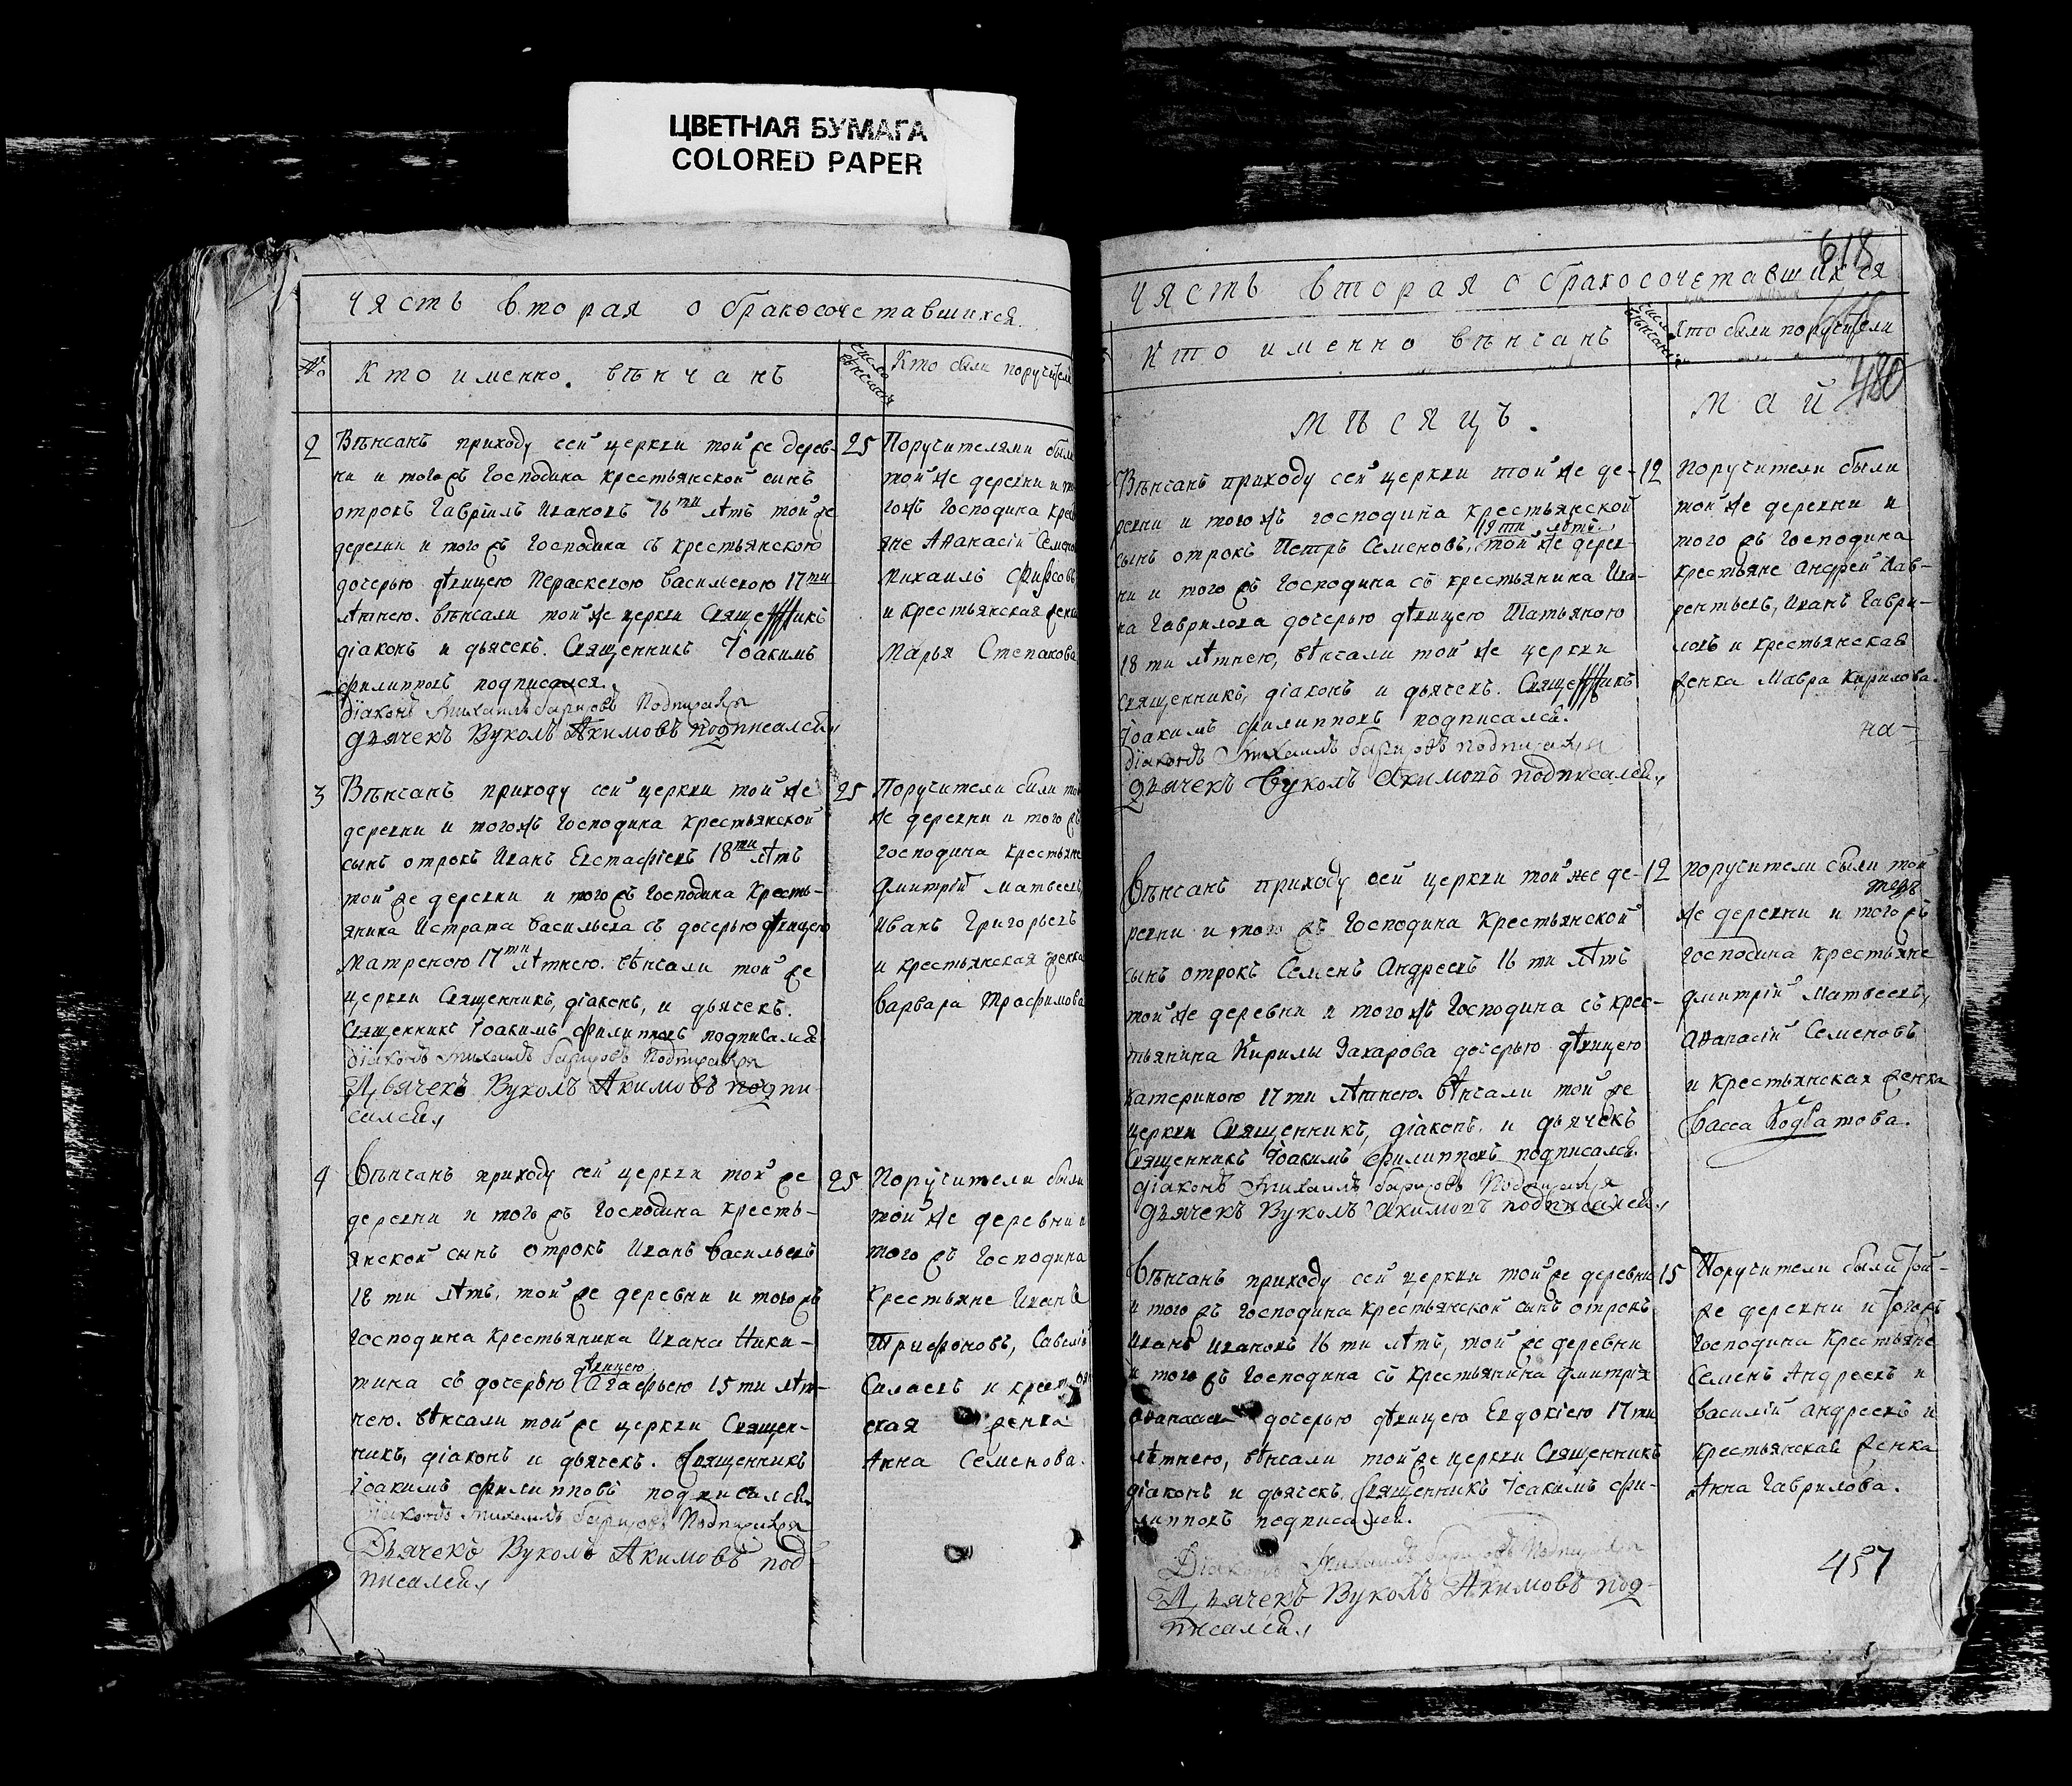 ЦВЕТНАЯ БУМАГА
COLORED PAPER
Часть вторая о бракосочетавшихся
№ Кто именно вѣнчанъ
число вѣнчанія
Кто были поручители
2 Вѣнчанъ приходу сей церкви той же дерев-
ни и тогожъ Господина крестьянской сынъ
отрокъ Гавріилъ Ивановъ 16ти лѣтъ той же
деревни и того жъ Господина съ крестьянскою
дочерью дѣвицею Параскевою Васильевою 17ти
лѣтнею. вѣнчали той же церкви Священникъ
діаконъ и дьячекъ. Священникъ Іоакимъ
Филипповъ подписался.
діаконъ Михаилъ Подписался
дьячекъ Вуколъ Акимовъ подписался
25 Поручителями были
той же деревни и то
гожъ Господина крес
яне Афанасій Семено
Михаилъ Фирсовъ
и крестьянская женка
Марья Степанова
3 Вѣнчанъ приходу сей церкви той же
деревни и тогожъ Господина крестьянской
сынъ отрокъ Иванъ Евстафіевъ 18ти лѣтъ
той же деревни и того жъ Господина кресть-
янина Истрата Васильева съ дочерью дѣвицею
Матреною 17ти лѣтнею. вѣнчали той же
церкви Священникъ, діаконъ, и дьячекъ.
Священникъ Іоакимъ Филипповъ подписался
діаконъ Михаилъ Подписался
Дьячекъ Вуколъ Акимовъ подпи
сался
25 Поручители были той
же деревни и того жъ
господина крестьяне
Дмитрій Матвеевъ,
Иванъ Григорьевъ
и крестьянская женка
Варвара Трофимова
4 Вѣнчанъ приходу сей церкви той же
деревни и того жъ Господина кресть-
янской сынъ отрокъ Иванъ Васильевъ
18 ти лѣтъ, той же деревни и того жъ
Господина крестьянина Ивана Ники-
дѣвицею
тина съ дочерью Агафьею 15 ти лѣт-
нею. вѣнчали той же церкви Священ-
никъ, діаконъ и дьячекъ. Священникъ
Іоакимъ Филипповъ подписался
діаконъ Михаилъ Подписался
Дьячекъ Вуколъ Акимовъ под
писался
25 Поручители были
той же деревни и
того жъ Господина
крестьяне Иванъ
Трифоновъ, Савелій
Силаевъ и кресть
ская женка
Анна Семенова.
618
Часть вторая о бракосочетавшихся
Кто именно вѣнчанъ
число вѣнчанія
Кто были поручители
480
Мѣсяцъ.
Май
Вѣнчанъ приходу сей церкви той же де-
ревни и того жъ господина крестьянской
19 ти лѣтъ
сынъ отрокъ Петръ Семеновъ, той же дерев-
ни и того жъ Господина съ крестьянина Ива-
на Гаврилова дочерью дѣвицею Татьяною
18 ти лѣтнею, вѣнчали той же церкви
Священникъ, діаконъ и дьячекъ. Священникъ
Іоакимъ Филипповъ подписался.
діаконъ Михаилъ подписался
дьячекъ Вуколъ Акимовъ подписался
12 Поручители были
той же деревни и
того жъ Господина
крестьяне Андрей Лав-
рентьевъ, Иванъ Гаври-
ловъ и крестьянская
женка Мавра Кирилова.
на-
Вѣнчанъ приходу сей церкви той же де-
ревни и того жъ Господина крестьянской
сынъ отрокъ Семенъ Андреевъ 16 ти лѣтъ
той же деревни и того жъ Господина съ крес-
тьянина Кирилы Захарова дочерью дѣвицею
Катериною 17 ти лѣтнею. вѣнчали той же
церкви Священникъ, діаконъ, и дьячекъ
Священникъ Іоакимъ Филипповъ подписался.
діаконъ Михаилъ Подписался
дьячекъ Вуколъ Акимовъ подписался
12 поручители были той
же деревни и того жъ
господина крестьяне
Дмитрій Матвеевъ,
Афанасій Семеновъ
и крестьянская женка
Васса Кодратова.
Вѣнчанъ приходу сей церкви той же деревни
и того жъ господина крестьянской сынъ отрокъ
Иванъ Ивановъ 16 ти лѣтъ, той же деревни
и того жъ Господина съ крестьянина Дмитрія
Афанасьева дочерью дѣвицею Евдокіею 17 ти
лѣтнею, вѣнчали той же церкви Священникъ
діаконъ и дьячекъ, Священникъ Іоакимъ Фи-
липповъ подписался.
Діаконъ Михаилъ Подписался
Дьячекъ Вуколъ Акимовъ под-
писался
15 Поручители были той-
же деревни и тогожъ
Господина крестьяне
Семенъ Андреевъ и
Василій Андреевъ и
крестьянская женка
Анна Гаврилова.
457